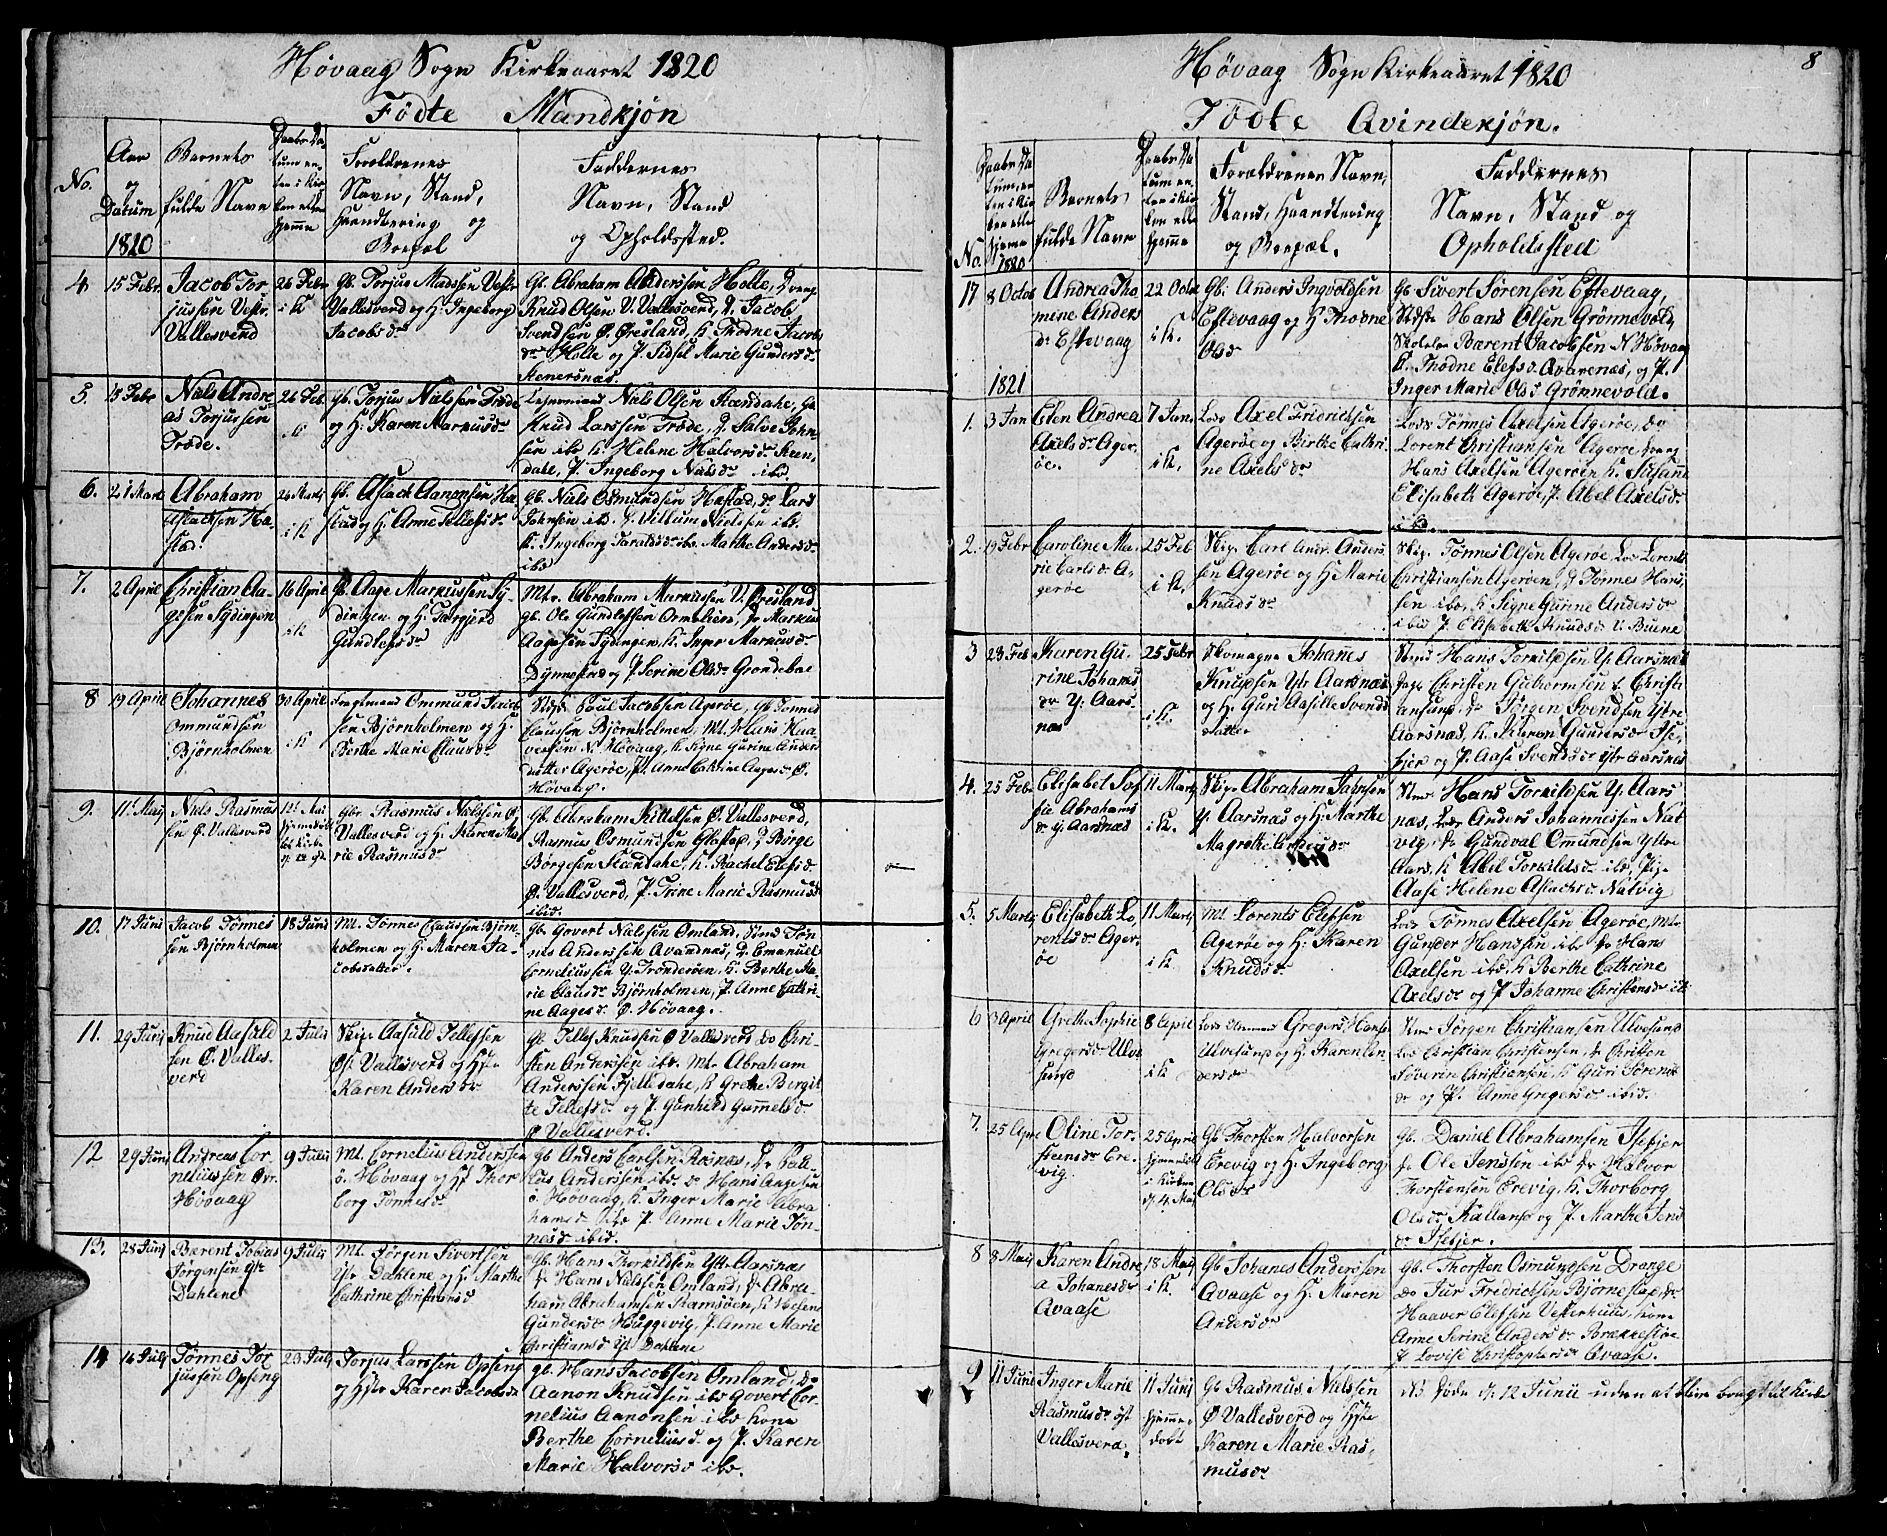 Høvaag Sogn Kirkeaaret 1820
Fødte Mandkjøn
No.
Aar
og
Datum
1820
Barnets
fulde Navn
Daabs Da-
tum en-
ten i Kir-
ken eller
hjemme
Foreldrenes
Navn, Stand,
Haandtering og
Boepæl
Faddernes
Navn, Stand
og Opholdssted.
4
15 Febr
Jacob Tor-
jussen Vestr.
Vallesverd
26 Febr
i K
Gb. Torjus Madssen Vestr
Vallesverd og H. Ingeborg
Jacobs dr
Gb. Abraham Anderssen Holte, Dreng
Knud Olsen V. Vallesverd, d. Jacob
Svendsen Ø. Øresland, K. Thodne Jacobs
dr Holte og P. Sidsel Marie Gunders dr
Stenersnæs.
5.
15 Febr
Niels Andre-
as Torjussen
Træde.
26 Feb.
i K
Gb. Torjus Nielssen Træde
og H. Karen Markus dr
Niels Olsen Steendahe, Gb
Knud Larssen Træde, d. Salve John-
sen ibd K. Helene Halvors dr Steen-
dahe, P. Ingeborg Niels dr ibd.
6.
21 Mart
Abraham
Aslachsen Ha-
stad.
26 Marty
i K
Gb. Aslach Aanonsen Ha-
stad og H. Anne Tellefs dr
Gb. Niels Osmundsen Hastad, do Lars
Johnsen ibd. d. Villum Nielsen ibd.
K. Ingeborg Taralds dr ibd. Marthe Anders dr
ibd
7.
2 April
Christian Aa-
gesen Sydingen
16 April
i K
Gb Aage Markussen Sy-
dingen og H. Torgjerd
Gundlefs dr
Mtr. Abraham Markussen V. Øresland
Gb. Ole Gundlefssen Ormeliene, dr Markus
Aagesen Sydingen K. Inger Markus dr
Dynnesund og P. Serine Ols dr Grondeboe
8
19 April
Johannes
Ommundsen
Bjørnholmen
30 April
i K
Ommund Jacob-
sen Bjørnholmen og H.
Berthe Marie Claus dr
Poul Jacobsen Agerøe, Gb Tønnes
Claussen Bjørnholmen, Mt. Hans Haa-
versen N. Høvaag, K. Signe Gurine Anders
datter Agerøe, P. Anne Cathrine Aages dr Ø.
Høvaag.
9.
11 Maij
Niels Rasmus-
sen Ø. Vallesverd
Gbr. Rasmus Nielsen Ø.
Vallesverd og H. Karen Ma-
rie Rasmus dr
Gb. Abraham Kittelsen Ø. Vallesverd,
Rasmus Osmundsen Glastad, d Børge
Børgesen Steendahe, K. Rachel Elefs dr
Ø. Vallesverd, P. Trine Marie Rasmus dr
ibid.
10.
17 Juni
Jacob Tønnes-
sen Bjørnholmen
18 Juni
Mt. Tønnes Claussen Bjørn-
holmen og H. Maren Ja-
cobsdatter.
Gb. Govert Nielsen Omland, Stmd Tøn-
nes Anderssen Avandnes, d. Emanuel
Corneliussen Y. Trondøen, K. Berthe Ma-
rie Claus dr Bjørnholmen, P. Anne Cathri-
ne Aages dr Ø. Høvaag.
11.
29 Junij
Knud Aasuld-
sen Ø. Valles-
verd
2 Julij
Skip. Aasuld Tellefsen
Øst Vallesverd og Hst
Karen Anders dr
Gb Tellef Knudsen Ø Vallesverd, do Chri-
sten Anderssen ibd. Mt. Abraham
Anderssen Fjelledahe, K Grethe Bergit-
te Tellefs dr og P. Gunhild Gummels dr
Ø Vallesverd.
12
29 Junij
Andreas Cor-
neliussen Ør.
Høvaag
9 Julij
Mt. Cornelius Anderssen
ø. Høvaag og Hst Thor-
borg Tønnes dr
Gb Anders Carlsen Røsnæs, dr Pau-
lus Anderssen ibd. do Hans Aagesen
ø. Høvaag, K. Inger Marie Abra-
hams dr ibd P. Anne Marie Tøn-
nes d ibid.
13.
28 Junij
Bærent Tobias
Jørgensen Yttr
Dahlene
9 Julij
Mt. Jørgen Sivertsen
Ystr Dahlene og H. Marthe
Cathrine Christians d
Gb. Hans Thorkildsen Ytt. Aarsnæs
dr Hans Nielssen Omland, dr Abra-
ham Abrahamsen Ramsøen, K
Gunders dr Huggevig, P. Anne Marie
Christians d Yst. Dahlene
14
14 Julj
Tønnes Tor-
jussen Opsing
23 Julj
Torjus Larssen Opsing
og Hst Karen Jacobs dr
Gb. Hans Jacobsen Omland, do
Aanon Knudsen ibd Govert Cor-
nelius Aanonsen ibd Kone
Berthe Cornelius d. og P. Karen
Marie Halvors d ibd.
8
Høvaag Sogn Kirkeaaret 1820
Fødte Qvindekjøn.
No.
1820
Barnets
fulde Navn
Daabs Da-
tum en-
ten i Kir-
ken eller
hjemme
Forældrenes Navn,
Stand, Haandtering
og Boepæl.
Faddernes
Navn, Stand og
Opholdssted
17
8 Octob
Andrea Tho-
mine Anders
dr Eftevaag
22 Octr
i K.
Gb. Anders Ingvoldsen
Eftevaag og H. Thodne
Ols dr
Gb Sivert Sørensen Eftevaag,
Hans Olsen Grønnevold,
Bærent Jacobsen N Høvaag
K. Thodne Elefs dr Qvarenæs, og P.
Inger Marie Ols dr Grønnevold.
1821
1.
3 Jan
Elen Andrea
Axels dr Ager-
øe.
7 Jan
i K.
Lods Axel Friderichsen
Agerøe og Birthe Cathri-
ne Axels dr
Lods Tønnes Axelsen Agerøe, do
Lorent Christiansen Agerøe Dreng
Hans Axelsen Agerøen K. Susane
Elisabeth Agerøe, P. Abel Axels dr
ibd.
2.
19 Febr
Caroline Ma-
rie Carls dr A-
gerøe
25 Feb
i K.
Skip. Carl Andr. Anders-
sen Agerøe og H. Marie
Knuds dr
Skip. Tønnes Olsen Agerøe Lods Lorents
Christiansen Agerøen, d Tønnes Hans-
sen ibd, K Signe Gunne Anders dr
ibid P. Elisabeth Knuds dr V. Buene
3
23 Feb
Karen Gu-
rine Johans
dr Y. Aars-
næs
25 Febr
i K.
Skomager Johannes
Knudsen Ytr Aarsnæs
og H. Guri Aasille Svends
datter
Stmd Hans Torkildsen Y. Aarsnæs
Christen Guttormsen f. Christi-
ansund dr Jørgen Svendsen Ytre
Aarsnæs, K. Karen Gunders dr Ise-
fjær og P. Aase Svends dr Ytr Aarsnæs
4.
25 Febr
Elisabet Sof-
fie Abrahams
dr Y. Aarsnæs
11 Marty
i K.
Skip. Abraham Jahnsen
Y. Aarsnæs og H. Marthe
Magrethe Anders dr
Stmd Hans Torkildsen Y. Aars-
næs, Lods Anders Johannessen Nat-
vig, dr Gundval Ommundsen Yttre
Aars, K Abel Torkilds dr ibd, Pige
Aase Helene Aslachs dr Natvig
5.
5 Marty
Elisabeth Lo-
rents dr Ager-
øe
11 Marty
i K
Mt. Lorents Elefsen
Agerøe og H. Karen
Knuds dr
Lods Tønnes Axelsen Agerøe, Mtr
Gunder Hanssen ibd dr Hans
Axelsen ibd, K Berthe Cathrine
Axels dr og P. Johanne Christens dr ib
6
3 April
Grethe Sophie
Gregers dr Ulve-
sund
8 April
i K
Lods Gregers Hansen
Ulvesund og H. Karen
Stmd Jørgen Christiansen Ulvesund
Lods Christian Christensen, dr Christen
Søverin Christiansen, K. Guri Sørens
dr og P. Anne Gregers dr ibid.
7.
25 Apr
Oline Tor-
steens dr Ere-
vig.
25 April
hjemmedøbt
i Kirken
d. 4 Maj
Gb Thorsten Halvorsen
Erevig og H. Ingeborg
Ols dr
Gb. Daniel Abrahamsen Isefjer
do Ole Jenssen ibd dr Halvor
Thorstensen Erevig, K. Thorborg
Ols dr Kalland og P. Marthe Jens
dr Isefjer.
8
8 Maij
Karen Andre-
a Johanes dr
Avaase
18 Maij
i K.
Gb Johanes Anderssen
Avaase og H. Maren
Anders dr
Gb. Thorsten Osmundsen Drange
do Jur Fredrichsen Bjørnestad, dr
Haaver Elefsen Vesterhuus, Kone
Anne Serine Anders dr Brækkestøe
P Lovise Christophers dr Avaase.
9
11 Junii
Inger Marie
Rasmus dr øst
Vallesverd.
11 Junij
hjemme-
døbt
Gb Rasmus Nielsen
Ø Vallesverd og Hst
Karen Marie Ras-
mus dr
NB. døde d. 12 Junii uden at blive bragt til Kirke